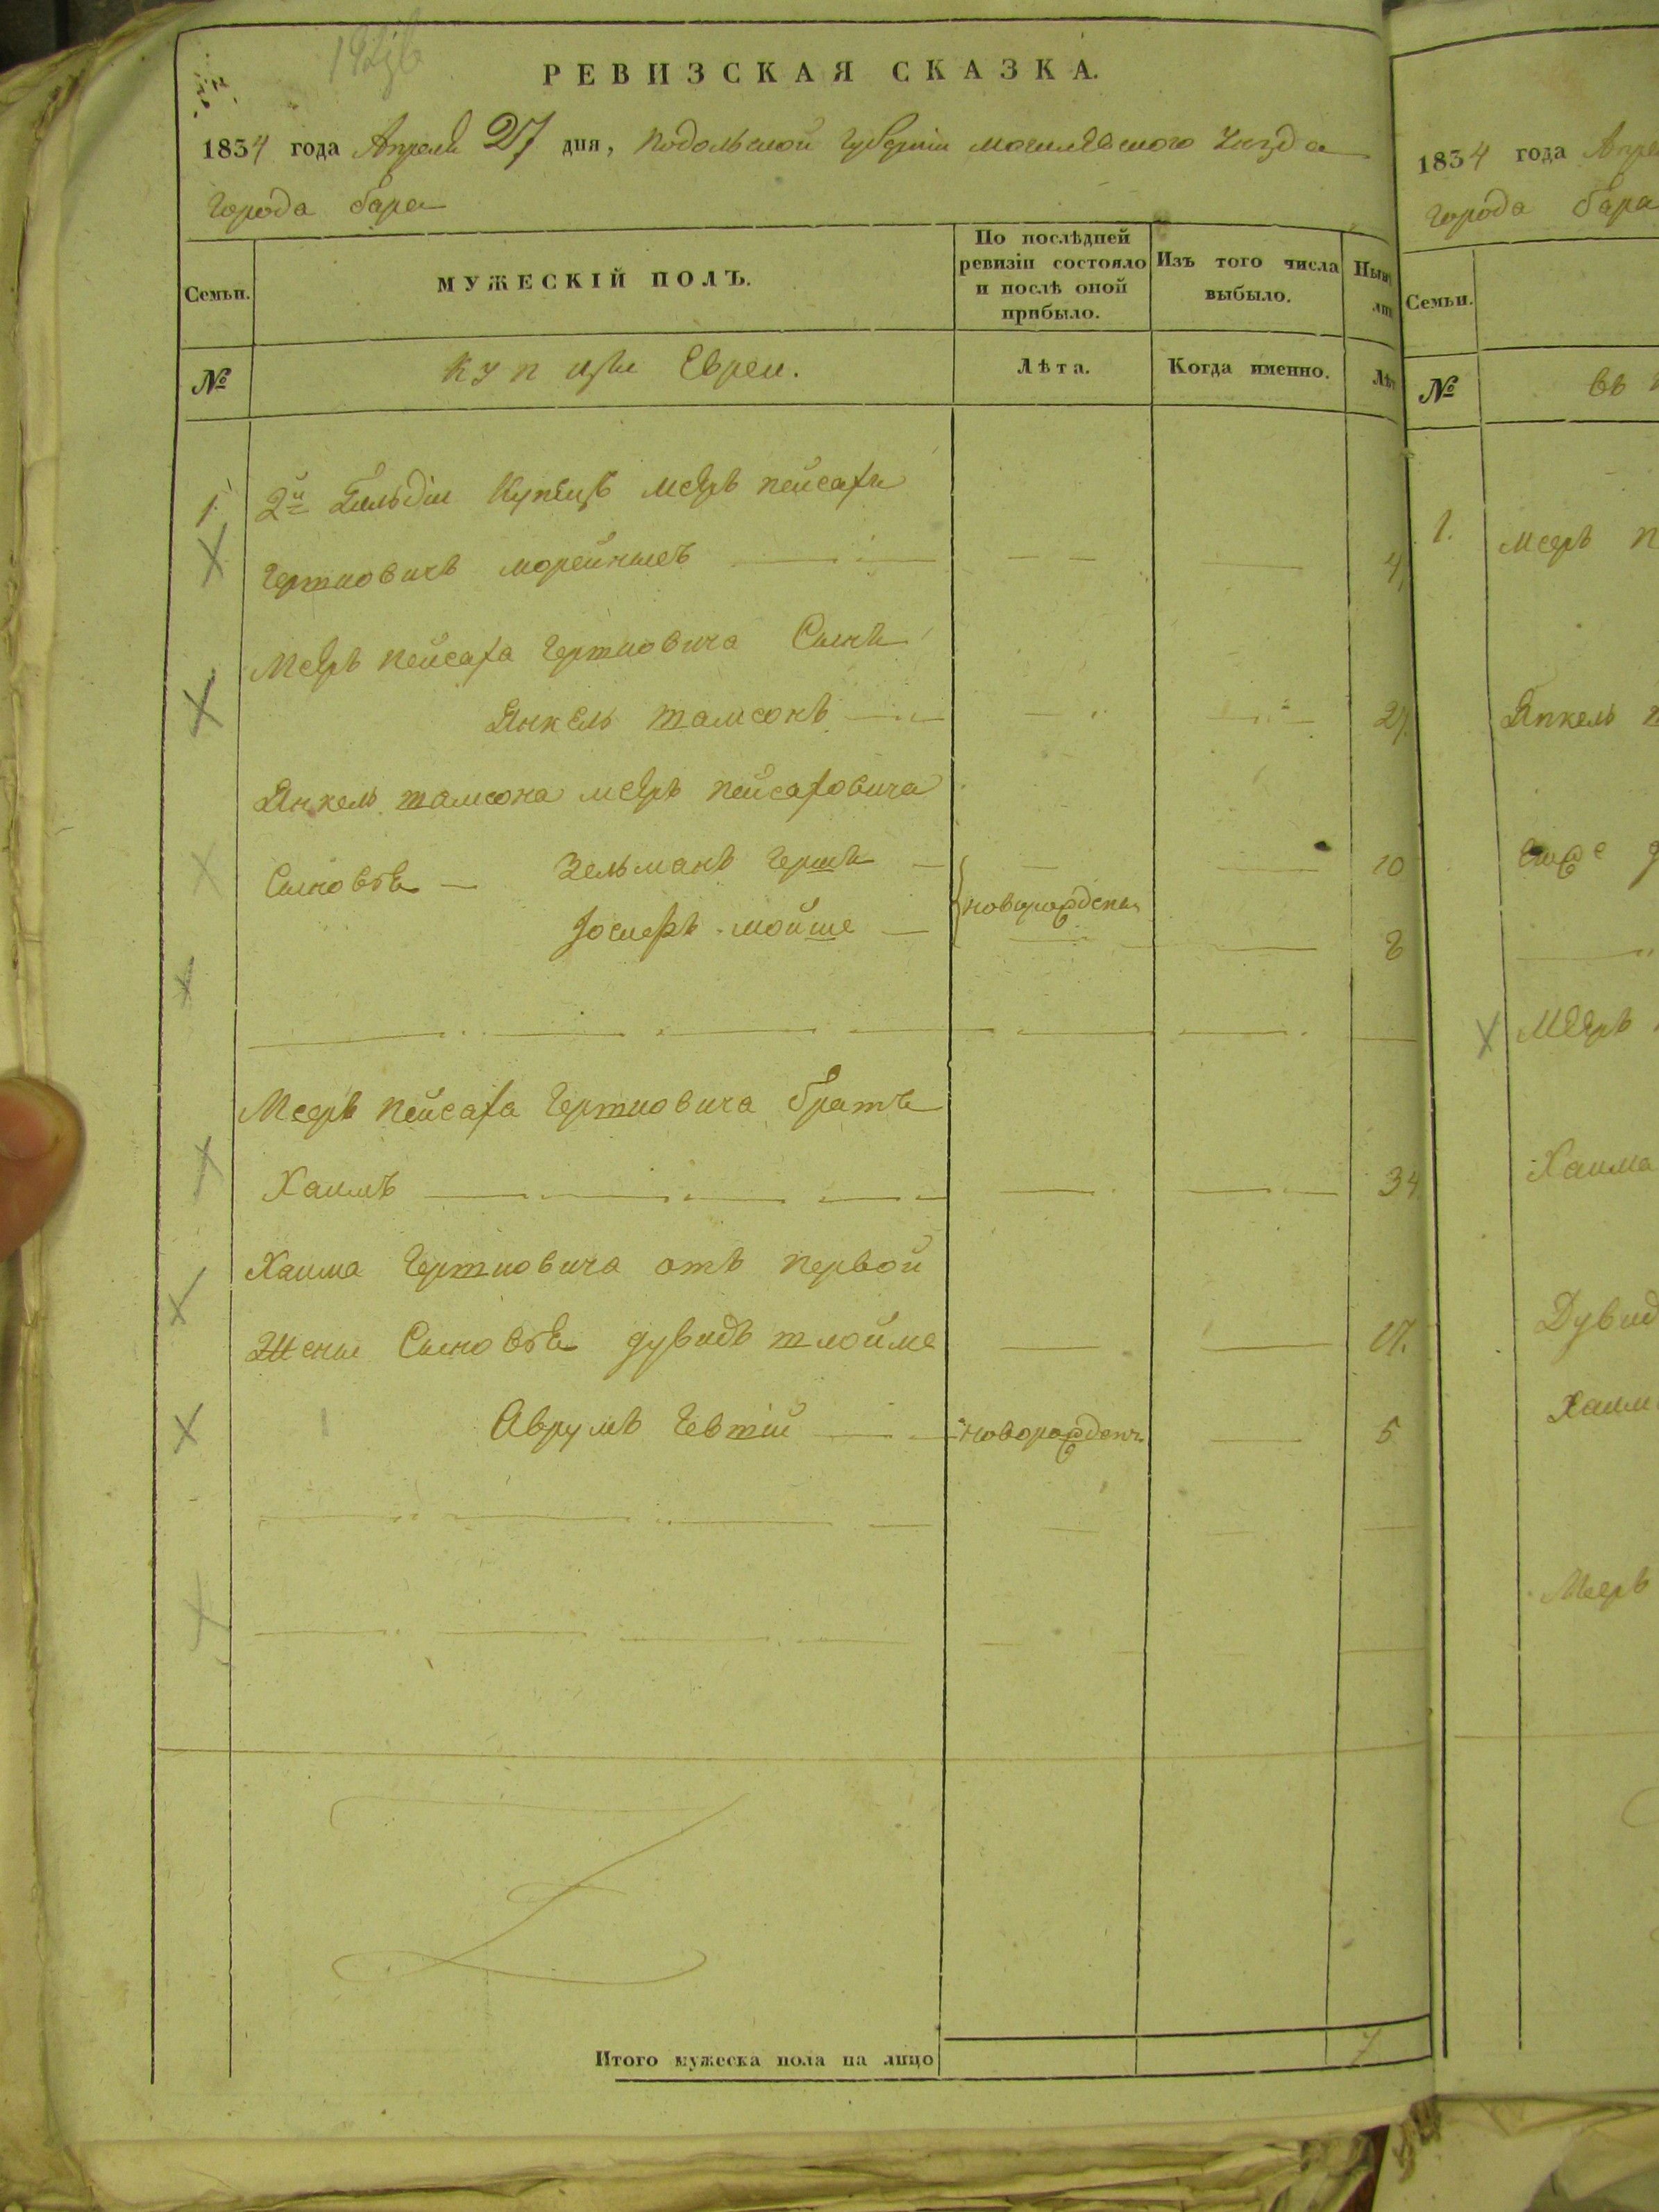 РЕВИЗСКАЯ СКАЗКА.
1834 года Апреля 27 дня, подольской губерніи могилевского уезда
города бара
Семьи.
МУЖЕСКІЙ ПОЛЪ.
По послѣдней ревизіи состояло и послѣ оной прибыло.
Изъ того числа выбыло.
№
купцы Евреи.
Лѣта.
Когда именно.
1. 2й Гильдіи Купецъ мееръ пейсахъ
Гершковичъ
Мееръ пейсаха Гершковича Сынъ
Янкель шамсонъ 27
Янкель шамсона мееръ пейсаховича
Сыновья Зельманъ Гершъ 10
новорожденн
Іосифъ мойше 8
Мееръ пейсаха Гершковича братъ
Хаимъ 34
Хаима Гершковича отъ первой
жены Сыновья дувидъ шлойме 17.
Аврумъ новорожден 5
Итого мужеска пола на лицо 7
1834 года
города бара
Семьи.
№
въ
1. мееръ
Янкель
Мееръ
Хаима
Дувид
Хаим
Мееръ